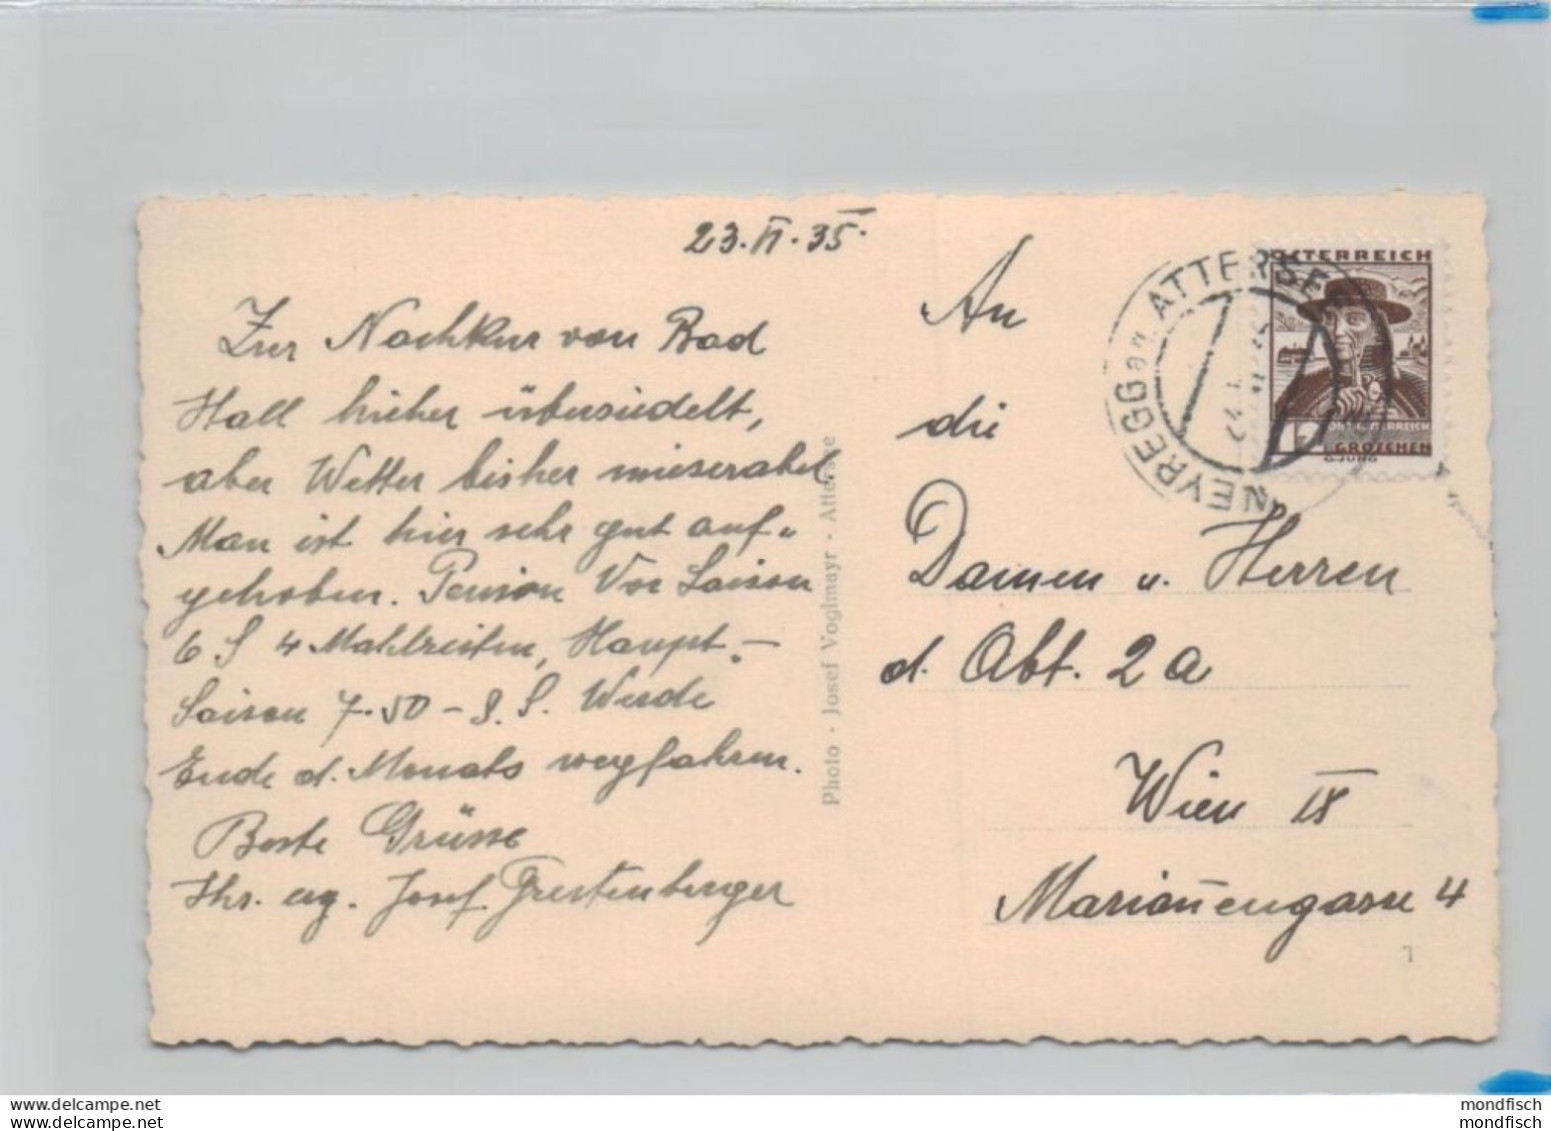 23. VI. 35.
Zur Nachkur von Bad
Hall hieher übersiedelt,
aber Wetter bisher miserabel
Man ist hier sehr gut auf-
gehoben. Pension Vor Saison
6 S 4 Mahlzeiten, Haupt-
Saison 7.50 - 8. S. Werde
Ende d. Monats wegfahren.
Beste Grüsse
Ihr. erg. Josef
Photo - Josef Voglmayr - Attersee
An
die
Damen u. Herren
d. Abt. 2a
Wien IX
Mariannengasse 4
ÖSTERREICH
GROSCHEN
G.JUNG
WEYREGG an ATTERSEE
delcampe.net
delcampe.net
mondfisch
mondfisch